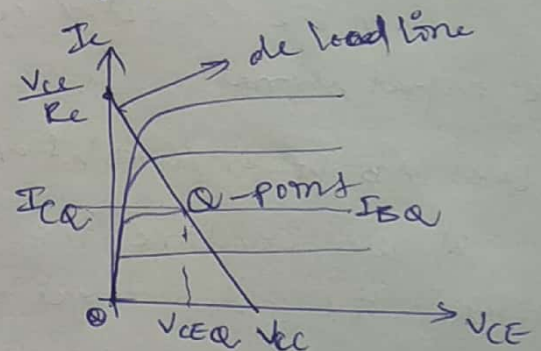 Ic
dc load line
Vcc
Rc
ICQ
Q-point
IBQ
0
VCEQ
VCC
VCE